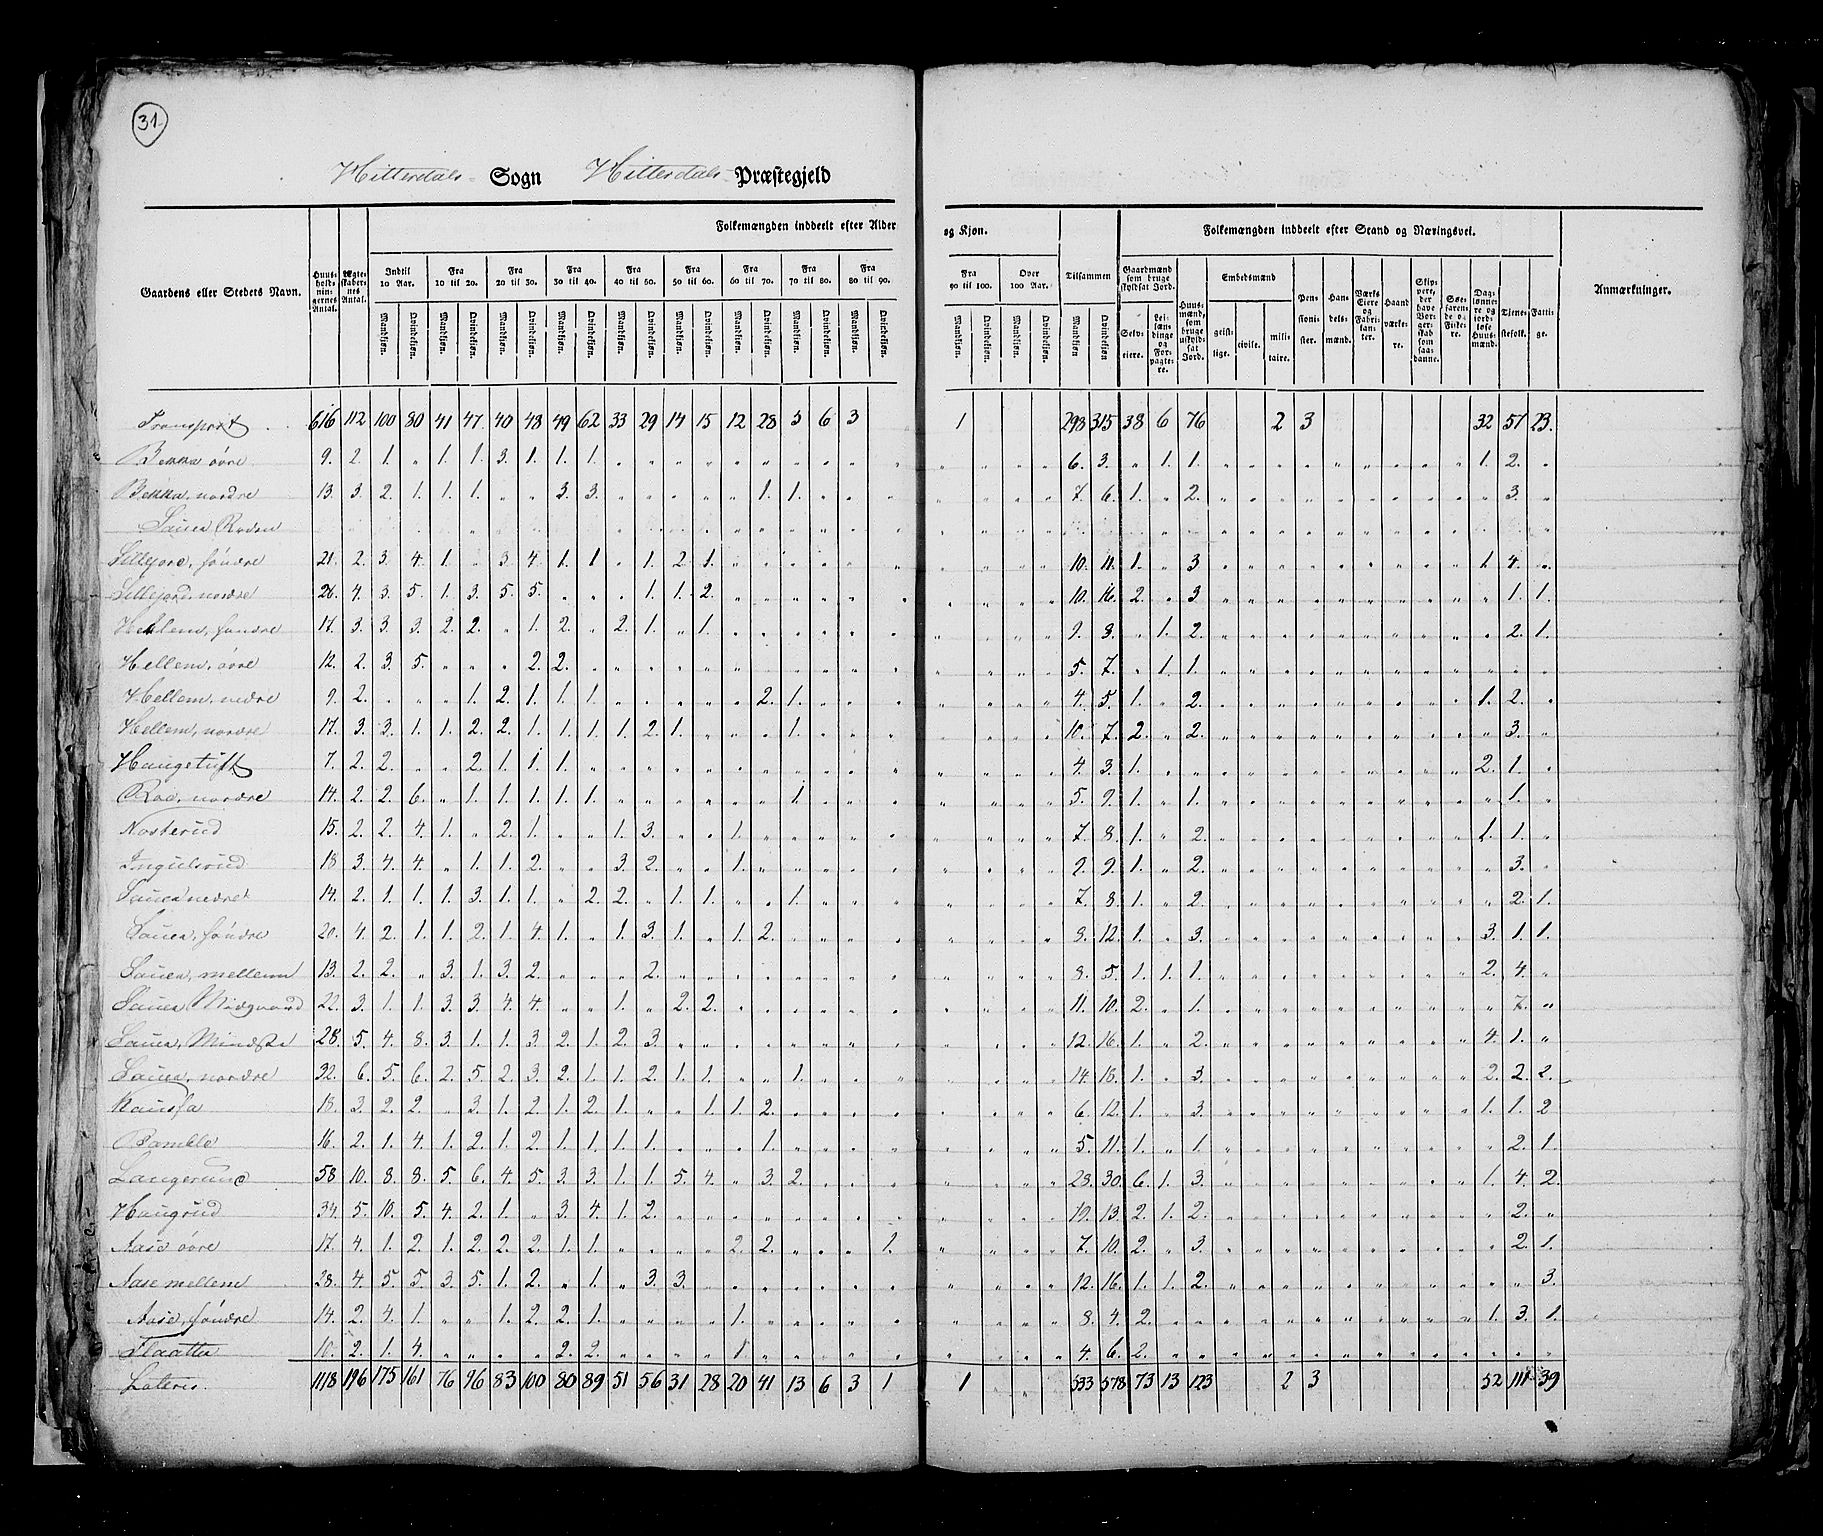 31
Hitterdals Sogn Hitterdals Præstegjeld
Gaardens eller Stedets Navn.
Huusholdningernes Antal.
Ægteskabernes Antal.
Folkemængden inddeelt efter Alder og Kjøn.
Indtil 10 Aar. Fra 10 til 20. Fra 20 til 30. Fra 30 til 40. Fra 40 til 50. Fra 50 til 60. Fra 60 til 70. Fra 70 til 80. Fra 80 til 90. Fra 90 til 100. Over 100 Aar. Tilsammen
Mandkjøn. Qvindekjøn.
Folkemængden inddeelt efter Stand og Næringsvei.
Gaardmænd som bruge skyldsat Jord.
Selveiere. Leilændinge og Forpagtere.
Huusmænd, som bruge uskyldsat Jord.
Embedsmænd
geistlige. civile. militaire.
Pensionister.
Handelsmænd.
Værks Eiere og Fabrikanter.
Haandværkere.
Skippere, der have Borgerskab som saadanne.
Søefarende og Fiskere.
Daglønnere og jordløse Huusmænd.
Tjenestefolk.
Fattige.
Anmærkninger.
Transport 616 112 100 80 41 47 40 48 49 62 33 29 14 15 12 28 5 6 3 1 298 315 38 6 76 2 3 32 57 23.
Bekka øvre 9. 2. 1. „ 1. 1. 3. 1. 1. 1. 6. 3. „ 1. 1. 1. 2.
Bekka, nordre 13. 3. 2. 1. 1. 1. „ „ 3. 3. 1. 1. 7. 6. 1. „ 2. 3.
Sauea Roden
Lillejord, søndre 21. 2. 3. 4. 1. „ 3. 4. 1. 1 „ 1. 2. 1. 10. 11. 1. „ 3 1. 4.
Lillejord, nordre 26. 4. 3. 5. 1. 3. 5. 5. 1. 1. 2. 10. 16. 2. „ 3. 1. 1.
Hellem, søndre 17. 3. 3. 3. 2. 2. „ 1. 2. „ 2. 1. „ 1. 9. 8. „ 1. 2. 2. 1.
Hellem, øvre 12. 2. 3. 5. 2. 2. 5. 7. „ 1. 1.
Hellem, nedre 9. 2. 1. 2. 1. 1. 1. 2. 1. 4. 5. 1. „ 2. 1. 2.
Hellem, nordre 17. 3. 3. 1. 1. 2. 2. 1. 1. 1. 1. 2. 1. 1. 10. 7. 2. „ 2. 3.
Haugetuft 7. 2. 2. „ „ 2. 1. 1. 1. 4. 3. 1. 2. 1.
Roe, nordre 14. 2. 2. 6. „ 1. 1. 1. 1. 1. 1. 5. 9. 1. „ 1. 1.
Nosterud 15. 2. 2. 4. 1. „ 2. 1. „ „ 1. 3. „ „ 1. 7. 8. 1. „ 2. 1. 1.
Ingulsrud 18 3. 4. 4. „ 1. 1. 2. „ „ 3. 2. „ „ 1. 9. 9. 1. „ 2. 3.
Sauea nedre 14. 2. 1. 1. 1. 3. 1. 1. „ 2. 2. „ 1. 1. „ „ 1. 7. 8. 1. „ 2. 2. 1.
Sauea, søndre 20. 4. 2. 1. 1. 2. 1. 4. 1. „ 1. 3. 1. „ 1. 2. 8. 12. 1. „ 3. 3. 1. 1.
Sauea, mellem 13. 2. 2. „ 3. 1. 3. 2. 2. 8. 5. 1. 1. 1. 2. 4.
Sauea Midgaard 22. 3. 1. 1. 3. 3. 4. 4. „ „ 1. „ 2. 2. 11. 10. 2. „ 1. 7.
Sauea, Mindste 28. 5. 4. 8. 3. 1. 1. 3. 2. 1. 2. 3. 12. 16. 1. „ 2. 4. 1.
Sauea, nordre 32. 6. 5. 6. 2. 5. 2. 3. 2. 1. 1. 2. 1. 1. „ „ 1. 14. 18. 1. „ 3. 2. 2. 2.
Kaasa 18. 3. 2. 2. „ 3. 1. 2. 1. 2. 1. „ „ 1. 1. 2. 6. 12. 1. „ 3. 1. 1. 2
Bamble 16. 2. 1. 4. 1. 2. 1. 2. 1. 1. 1. 1. 1. 5. 11. 1. „ 1. 2. 1.
Langerud 58 10. 8. 8. 5. 6. 4. 5. 3. 3. 1. 1. 5. 4. „ 3. 2. 28. 30. 6. 1. 3. 1. 4. 2.
Haugrud 34. 5. 10. 5. 4. 2. 1. „ 3. 4. 1. 2. 19. 13. 2. 1. 2. 2.
Aase øvre 17. 4. 1. 2. 1. 2. 2. 2. 1. 1. 2. 2. 1. 7. 10. 2. „ 3. 2. 1.
Aase mellem 28. 4. 5. 5. 3. 5. 1. 2. „ 1. „ 3. 3. 12. 16. 1. 1. 2. 3.
Aase, søndre 14. 2. 4. 1. „ „ 1. 2. 2. 1. 1. 8. 4. 2. 1. 3. 1.
Flaatta 10. 2. 1. 4. 2. 2. 1. 4. 6. 2.
Lateris. 1118 196 175 161 76 96 83 100 80 89 51 56 31 28 20 41 13 6 3 1 1 533 578 73 13 123 2 3 52 111 39